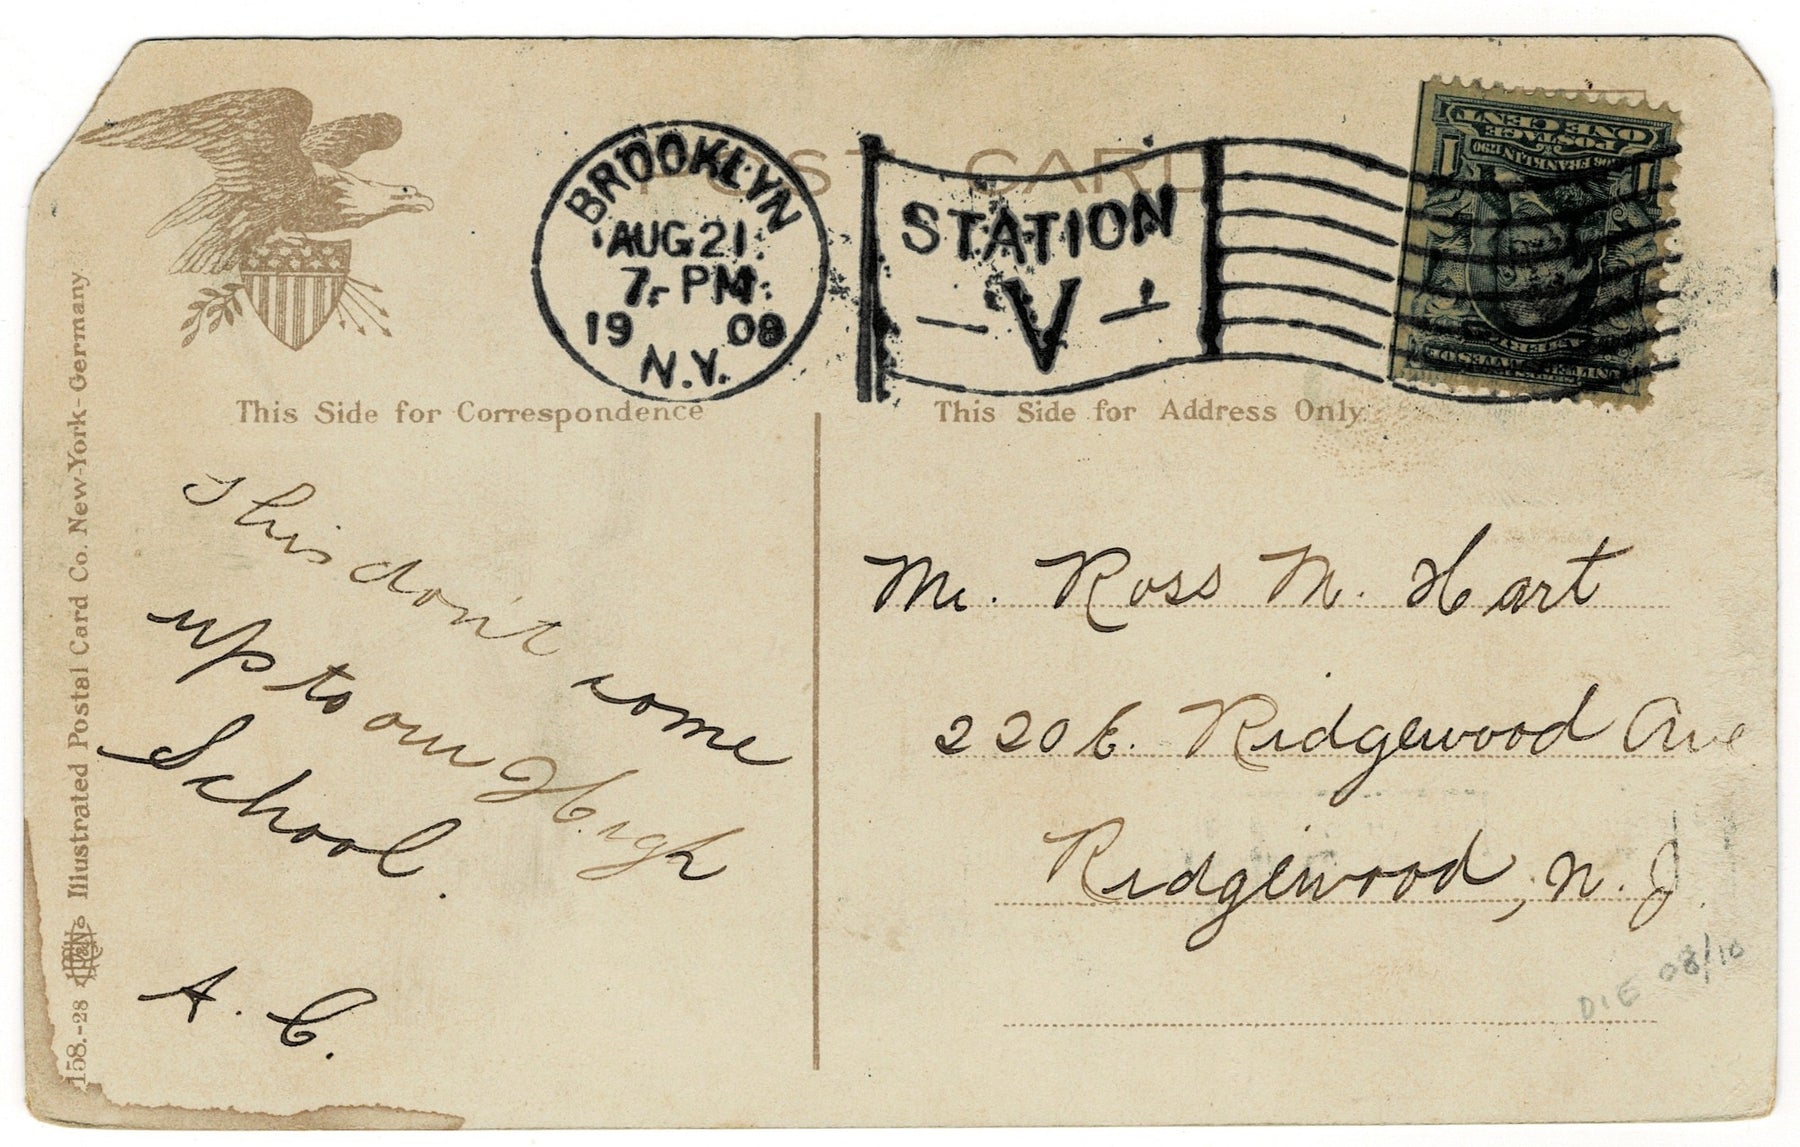 POST CARD
BROOKLYN
AUG 21
7- PM
19 08
N.Y.
STATION
V
ONE CENT
POSTAGE
FRANKLIN 1790
1 1
This Side for Correspondence
This Side for Address Only
This don't come
up to our High
School.
A. C.
Mr. Ross M. Hart
220 E. Ridgewood Ave
Ridgewood, N. J.
DIE 08/10
158.-28 Illustrated Postal Card Co. New-York-Germany